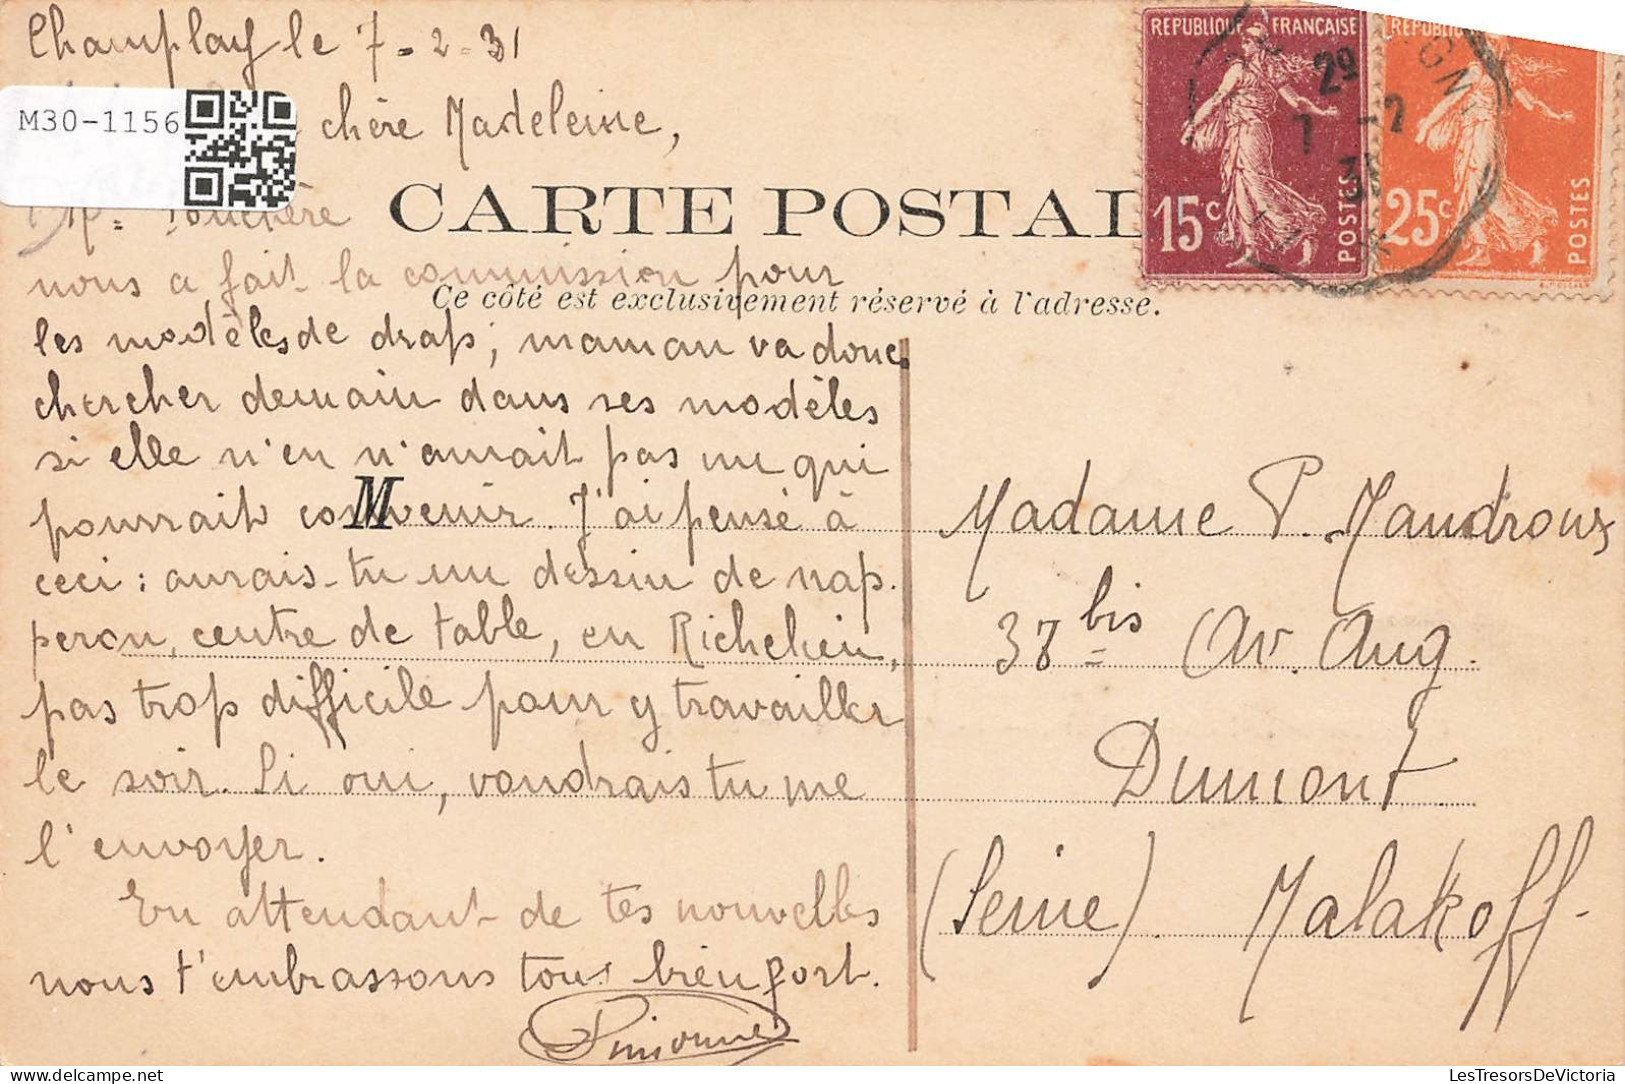 Champlay le 7-2-31
M30-1156
chère Madeleine,
CARTE POSTAL
nous a fait la commission pour
Ce côté est exclusivement réservé à l'adresse.
les modèles de draps ; maman va donc
chercher demain dans ses modèles
si elle n'en n'aurait pas un qui
pourrait convenir. J'ai pensé à
M
ceci : aurais-tu un dessin de nap-
peron, centre de table, en Richelieu,
pas trop difficile pour y travailler
le soir. Si oui, voudrais tu me
l'envoyer.
En attendant de tes nouvelles
nous t'embrassons tous bien fort.
Simonne
REPUBLIQUE FRANÇAISE
15c
POSTES
25c
POSTES
7 -2
31
Madame P. Mandroux
38 bis Av. Aug.
Dumont
(Seine). Malakoff.
LesTresorsDeVictoria